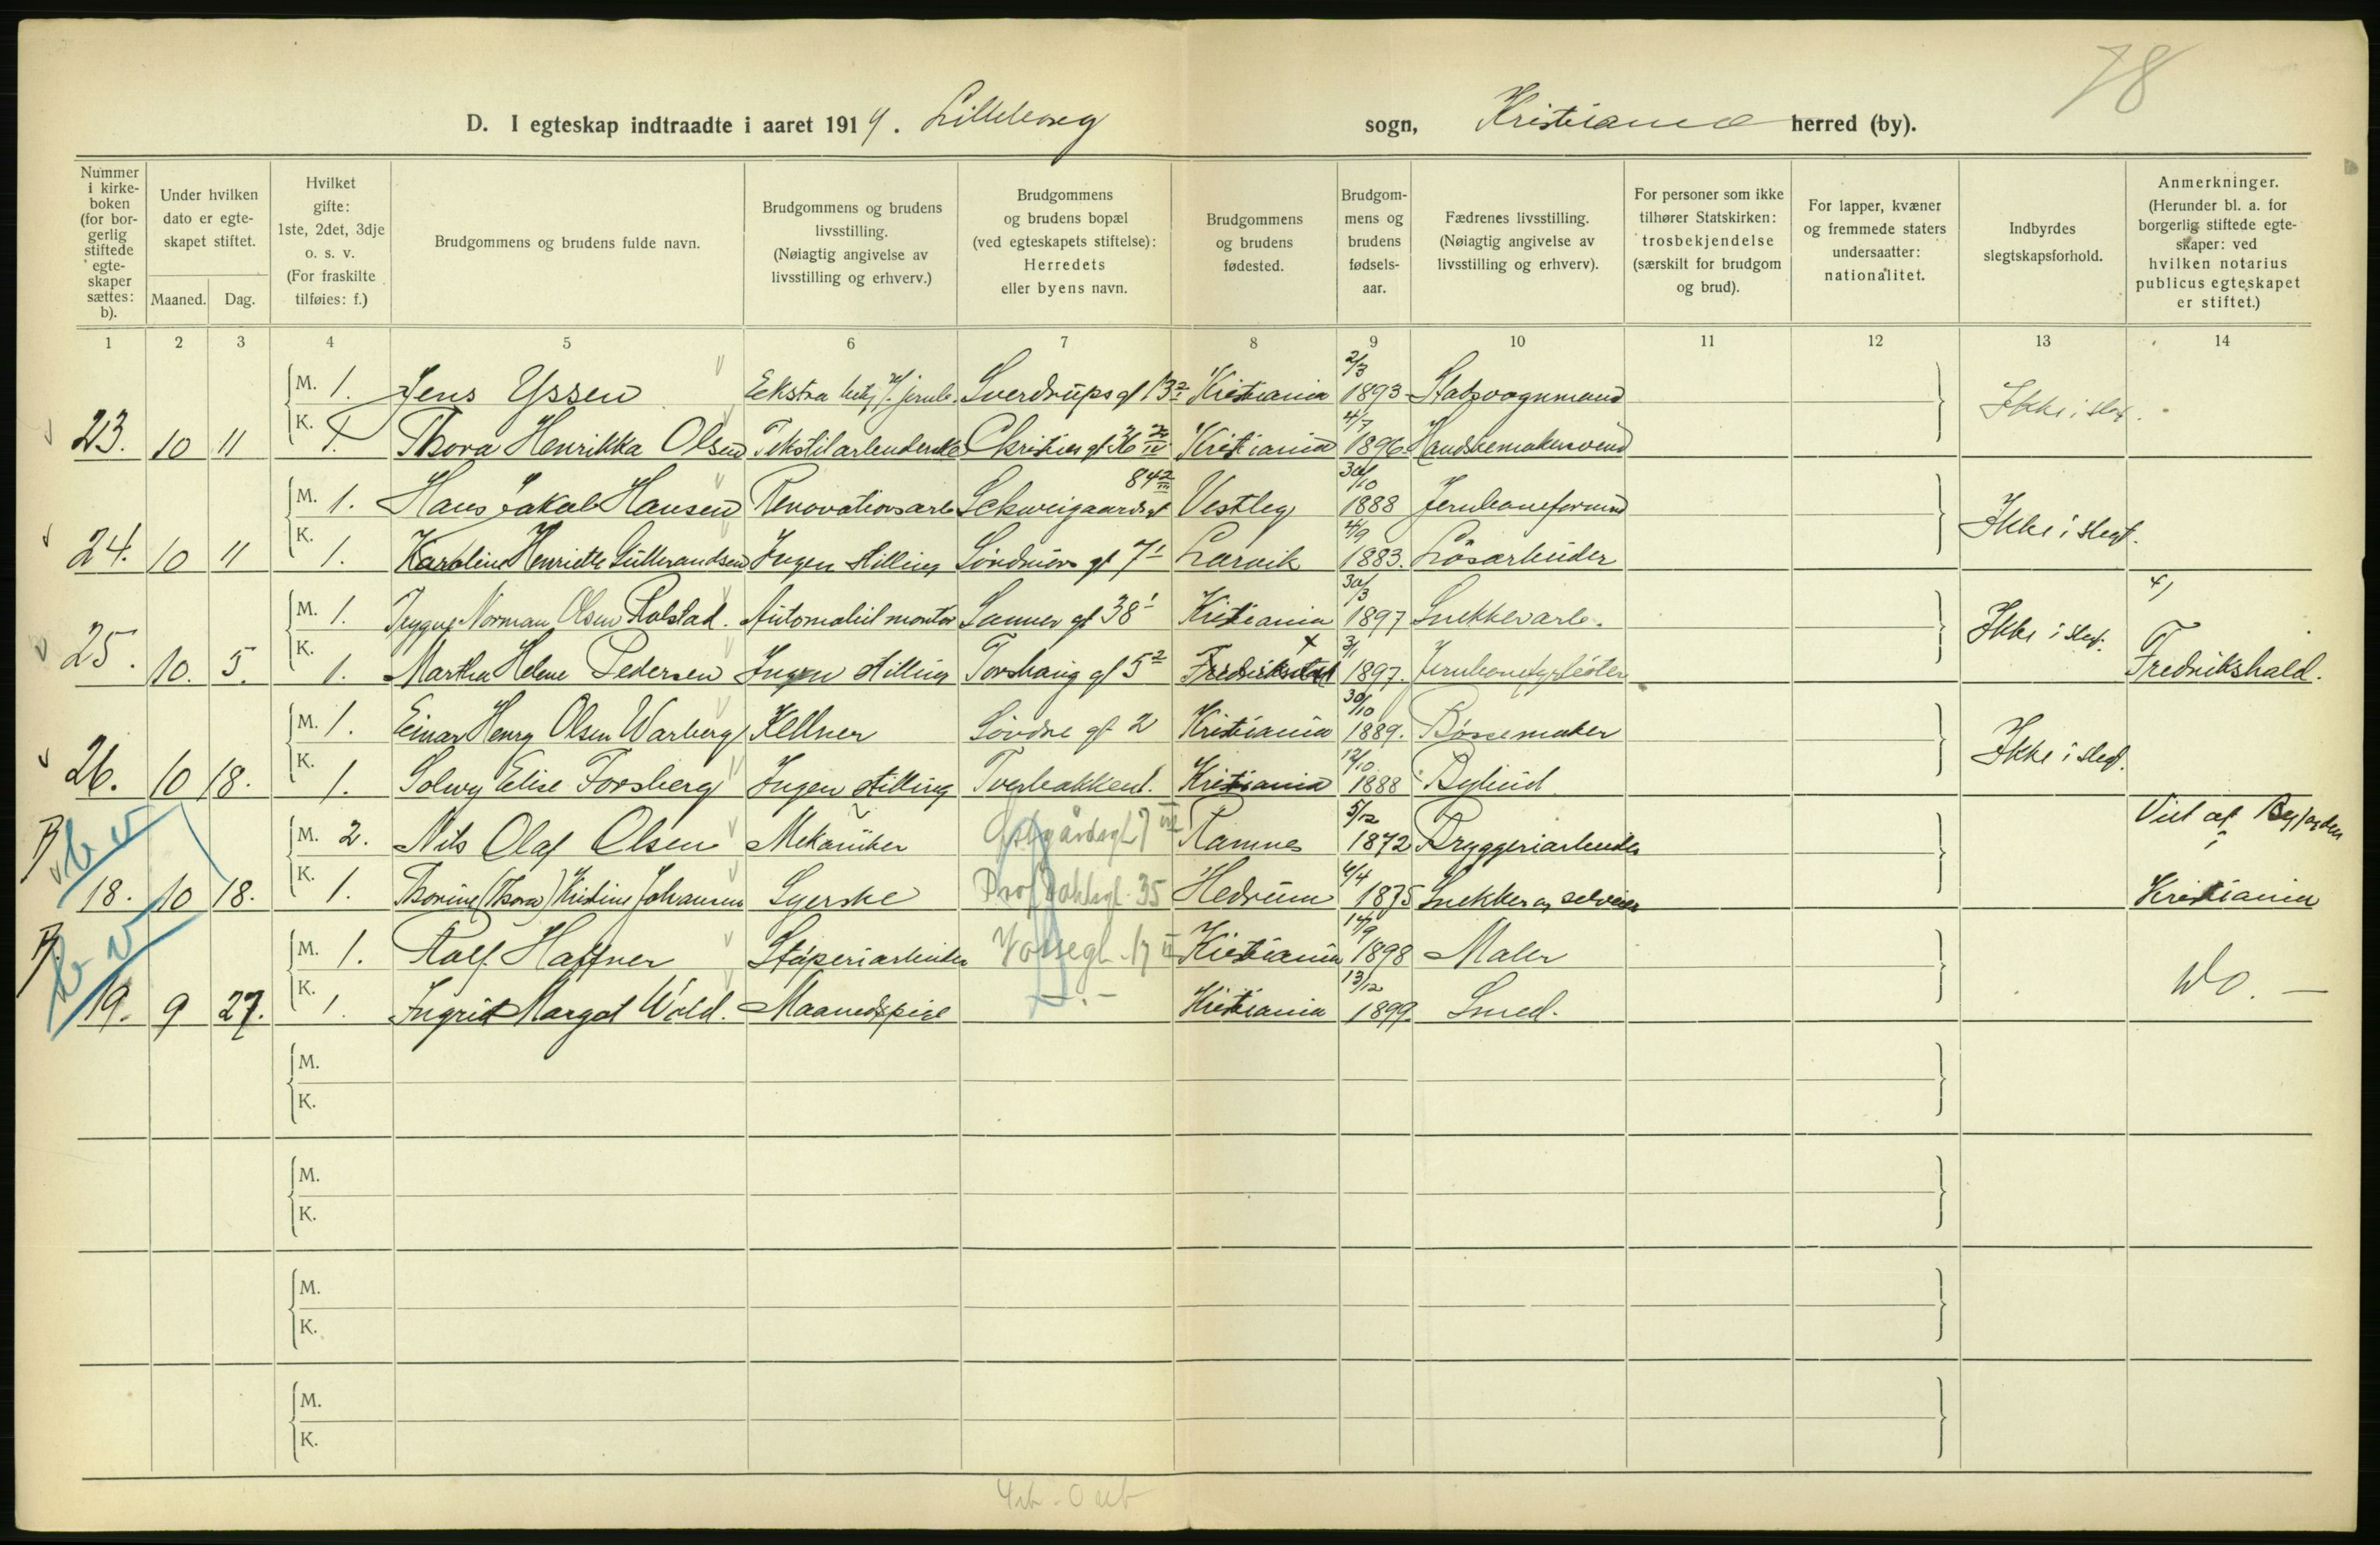 78
D. I egteskap indtraadte i aaret 1919. Lilleborg sogn, Kristiania herred (by).
Nummer i kirkeboken (for borgerlig stiftede egteskaper sættes: b).
Under hvilken dato er egteskapet stiftet.
Maaned. Dag.
Hvilket gifte: 1ste, 2det, 3dje o. s. v. (For fraskilte tilføies: f.)
Brudgommens og brudens fulde navn.
Brudgommens og brudens livsstilling. (Nøiagtig angivelse av livsstilling og erhverv.)
Brudgommens og brudens bopæl (ved egteskapets stiftelse): Herredets eller byens navn.
Brudgommens og brudens fødested.
Brudgommens og brudens fødselsaar.
Fædrenes livsstilling. (Nøiagtig angivelse av livsstilling og erhverv).
For personer som ikke tilhører Statskirken: trosbekjendelse (særskilt for brudgom og brud).
For lapper, kvæner og fremmede staters undersaatter: nationalitet.
Indbyrdes slegtskapsforhold.
Anmerkninger. (Herunder bl. a. for borgerlig stiftede egteskaper: ved hvilken notarius publicus egteskapet er stiftet.)
1 2 3 4 5 6 7 8 9 10 11 12 13 14
M. 1. Jens Yssen Ekstra betj. v. jernb. Sverdrups gt 13 2 Kristiania 2/3 1893 Stadsvognmand Ikke i slegt.
23. 10 11 K. 1. Thora Henrikka Olsen Tekstilarbeiderske Christies gt 36 IV Kristiania 4/7 1896 Handskemakersvend
M. 1. Hans Jakob Hansen Renovationsarb Schweigaardsgt 84 2 III Vestby 30/10 1888 Jernbaneformand Ikke i slegt.
24. 10 11 K. 1. Karoline Henriette Gulbrandsen Ingen stilling Söndmörs gt 7 1 Larvik 4/9 1883. Løsarbeider
M. 1. Trygve Norman Olsen Rolstad. Automobilmontør Sanner gt 38 1 Kristiania 30/3 1897 Snekkerarb. Ikke i slegt.
25. 10. 5. K. 1. Martha Helene Pedersen Ingen stilling Torshaug gt 5 2 Fredrikstad x 3/1 1897. x) Fredrikshald.
M. 1. Einar Henry Olsen Warberg Kellner Söndre gt 2 Kristiania 30/10 1889. Børsemaker Ikke i slegt.
26. 10 18. K. 1. Solwy Elise Forsberg Ingen stilling Tverbakkent. Kristiania 12/10 1888 Bybud
B b v M. 2. Nils Olaf Olsen Mekaniker Ramnes 5/12 1872 Bryggeriarbeider Viet af Byfogden i
18. 10 18. K. 1. Thorine (Thora) Kristine Johansen Syerske Prof Dahlsgt. 35 Hedrum 4/4 1875 Snekker og selveier Kristiania
B. b v M. 1. Rolf Haffner Støperiarbeider Vossegt. 17 II Kristiania 14/9 1898 Maler Do. —
19. 9 27. K. 1. Ingrid Margot Wold. Maanedspige — . — Kristiania 13/12 1899 Smed.
M.
K.
M.
K.
M.
K.
M.
K.